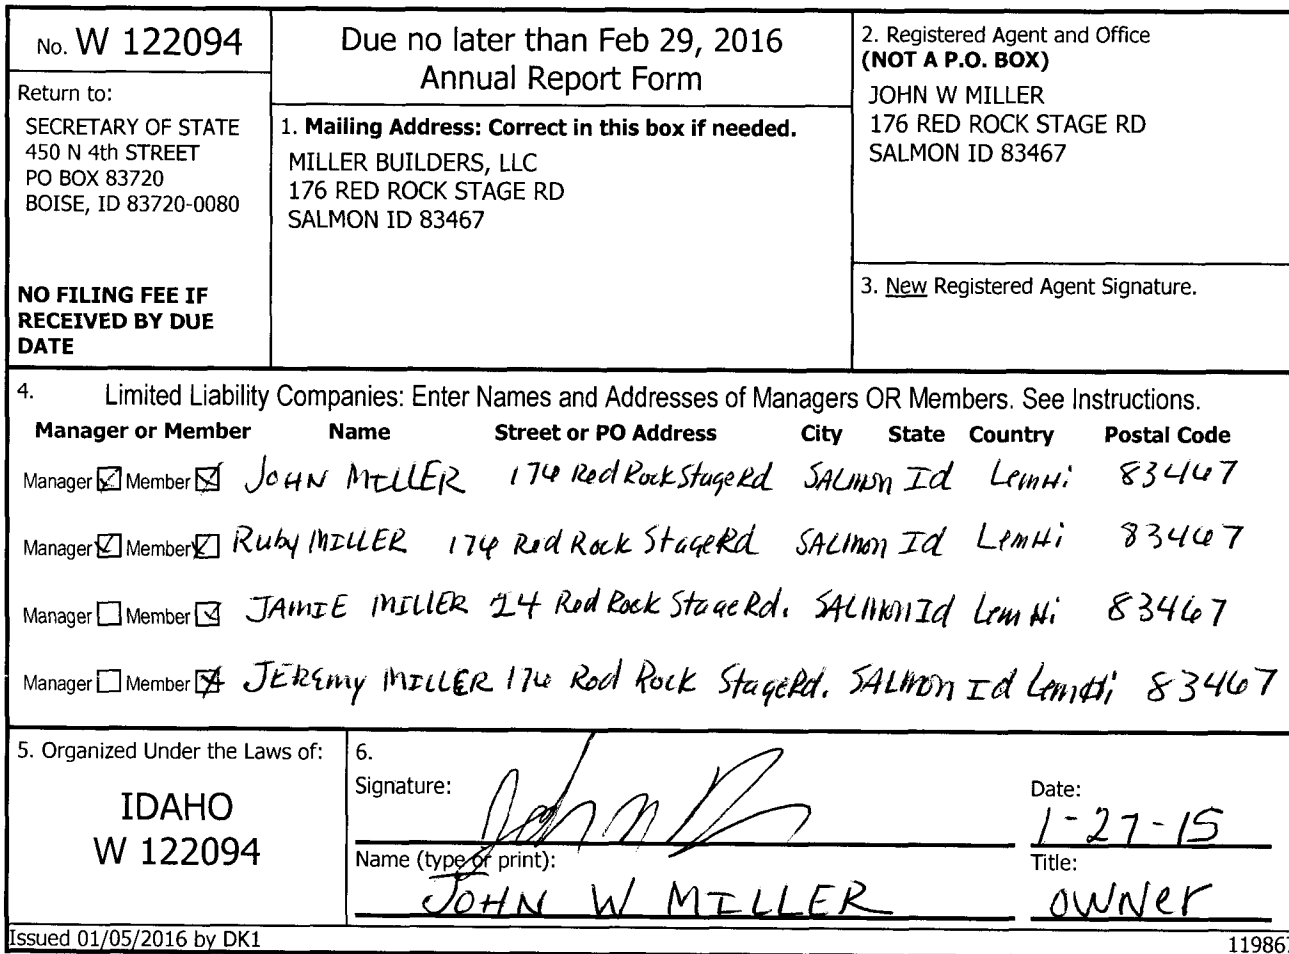 No. W 122094
Return to:
SECRETARY OF STATE
450 N 4th STREET
PO BOX 83720
BOISE, ID 83720-0080
NO FILING FEE IF
RECEIVED BY DUE
DATE
Due no later than Feb 29, 2016
Annual Report Form
1. Mailing Address: Correct in this box if needed.
MILLER BUILDERS, LLC
176 RED ROCK STAGE RD
SALMON ID 83467
2. Registered Agent and Office
(NOT A P.O. BOX)
JOHN W MILLER
176 RED ROCK STAGE RD
SALMON ID 83467
3. New Registered Agent Signature.
4. Limited Liability Companies: Enter Names and Addresses of Managers OR Members. See Instructions.
Manager or Member Name Street or PO Address City State Country Postal Code
Manager Member JOHN MILLER 176 Red Rock Stage Rd SALMON Id LemHi 83467
Manager Member Ruby MILLER 176 Red Rock Stage Rd SALMON Id LemHi 83467
Manager Member JAMIE MILLER 24 Red Rock Stage Rd. SALMON Id LemHi 83467
Manager Member JEREMY MILLER 176 Red Rock Stage Rd. SALMON Id LemHi 83467
5. Organized Under the Laws of:
IDAHO
W 122094
6.
Signature: John
Date:
1-27-15
Name (type or print):
JOHN W MILLER
Title:
OWNER
Issued 01/05/2016 by DK1
119867